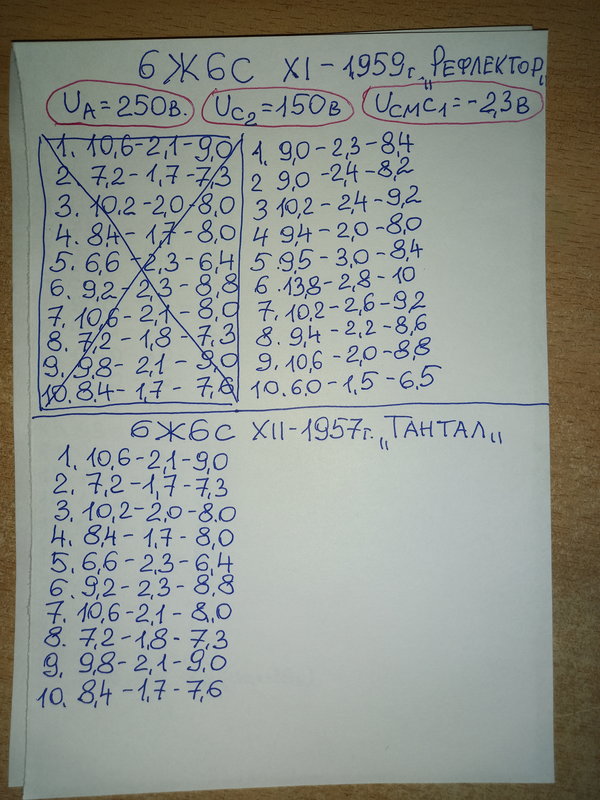 6Ж6С XI-1959г. „Рефлектор„
UА=250В. UС2=150В UСМС1=-2,3В
1. 10,6-2,1-9,0
2. 7,2-1,7-7,3
3. 10.2-2,0-8,0
4. 8,4-1,7-8,0
5. 6,6-2,3-6,4
6. 9,2-2,3-8,8
7. 10,6-2,1-8,0
8. 7,2-1,8-7,3
9. 9,8-2,1-9,0
10. 8.4-1,7-7,6
1. 9,0-2,3-8,4
2 9,0-2,4-8,2
3 10,2-2,4-9,2
4 9,4-2,0-8,0
5 9,5-3,0-8,4
6. 13,8-2,8-10
7. 10,2-2,6-9,2
8. 9,4-2,2-8,6
9. 10,6-2,0-8,8
10. 6.0-1,5-6.5
6Ж6С XII-1957г. „Тантал„
1. 10,6-2,1-9,0
2. 7,2-1,7-7,3
3. 10,2-2,0-8.0
4. 8,4-1,7-8,0
5. 6,6-2,3-6,4
6. 9,2-2,3-8,8
7. 10,6-2,1-8,0
8. 7,2-1,8-7,3
9. 9,8-2,1-9,0
10. 8,4-1,7-7,6